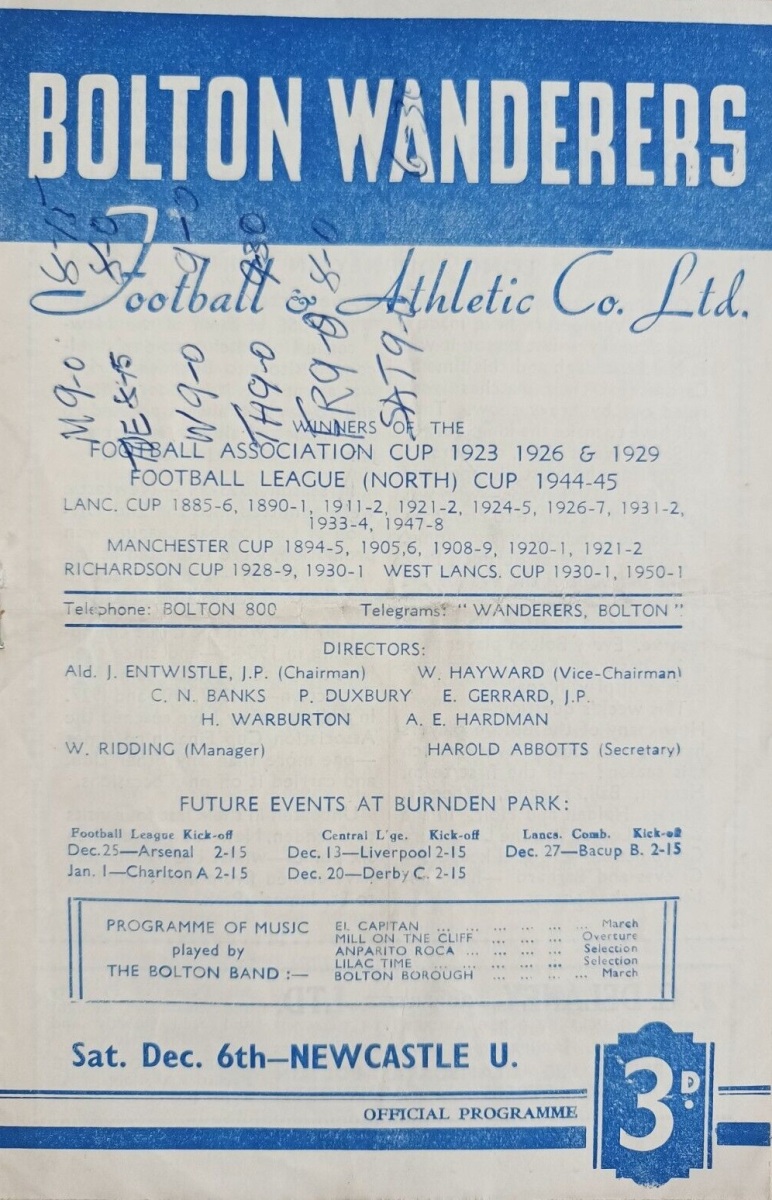 BOLTON WANDERERS
Football & Athletic Co. Ltd.
6-30
8-15
8-0
9-0
9-30
8-0
M 9-0
W 9-0
TH 9-0
FR 9-0
SAT 9-0
WINNERS OF THE
FOOTBALL ASSOCIATION CUP 1923 1926 & 1929
FOOTBALL LEAGUE (NORTH) CUP 1944-45
LANC. CUP 1885-6, 1890-1, 1911-2, 1921-2, 1924-5, 1926-7, 1931-2,
1933-4, 1947-8
MANCHESTER CUP 1894-5, 1905,6, 1908-9, 1920-1, 1921-2
RICHARDSON CUP 1928-9, 1930-1 WEST LANCS. CUP 1930-1, 1950-1
Telephone: BOLTON 800 Telegrams: " WANDERERS, BOLTON "
DIRECTORS:
Ald. J. ENTWISTLE, J.P. (Chairman) W. HAYWARD (Vice-Chairman)
C. N. BANKS P. DUXBURY E. GERRARD, J.P.
H. WARBURTON A. E. HARDMAN
W. RIDDING (Manager) HAROLD ABBOTTS (Secretary)
FUTURE EVENTS AT BURNDEN PARK:
Football League Kick-off Central L'ge. Kick-off Lancs. Comb. Kick-off
Dec. 25—Arsenal 2-15 Dec. 13—Liverpool 2-15 Dec. 27—Bacup B. 2-15
Jan. 1—Charlton A 2-15 Dec. 20—Derby C. 2-15
PROGRAMME OF MUSIC
played by
THE BOLTON BAND :—
EL CAPITAN ... ... ... ... ... March
MILL ON TNE CLIFF ... ... ... Overture
ANPARITO ROCA ... ... ... ... Selection
LILAC TIME ... ... ... ... ... Selection
BOLTON BOROUGH ... ... ... March
Sat. Dec. 6th—NEWCASTLE U.
OFFICIAL PROGRAMME
3D.